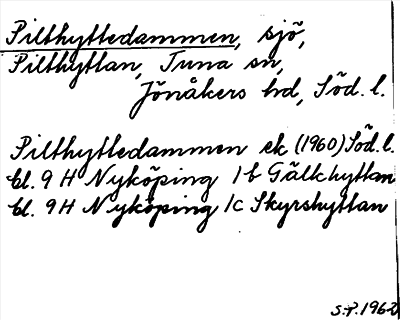 Pilthyttedammen, sjö,
Pilthyttan, Tuna sn,
Jönåkers hd, Söd. l.
Pilthyttedammen ek (1960) Söd. l.
bl. 9 H Nyköping 1b Gälkhyttan
bl. 9H Nyköping 1c Skyrshyttan
S.P. 1962